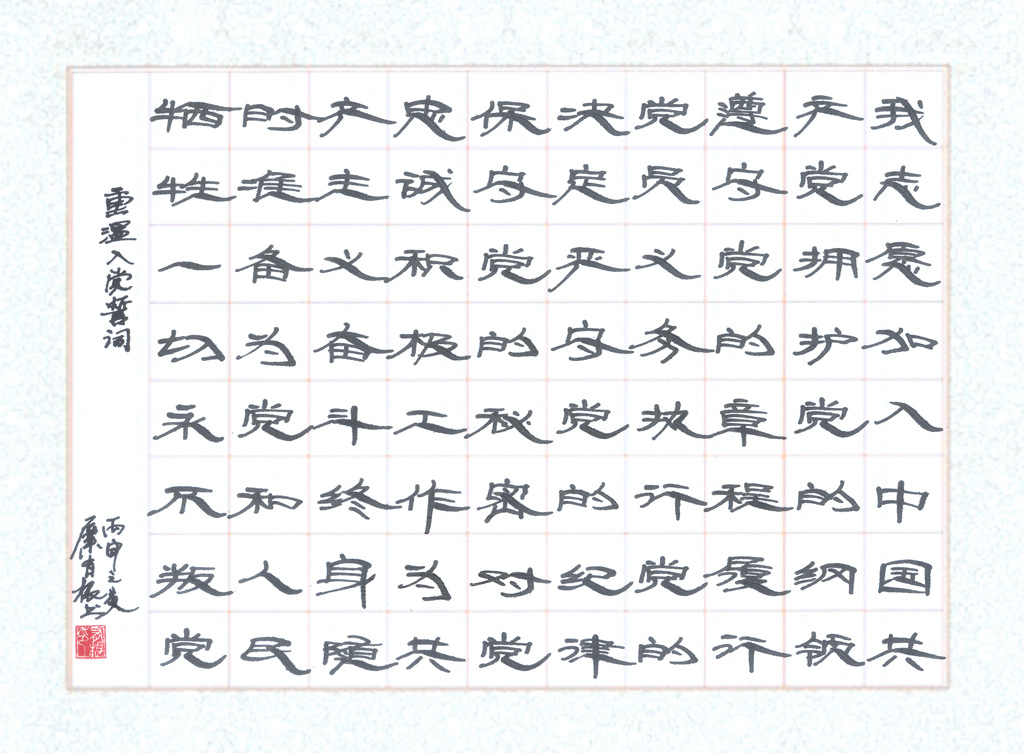 我志愿加入中国共
产党拥护党的纲领
遵守党的章程履行
党员义务执行党的
决定严守党的纪律
保守党的秘密对党
忠诚积极工作为共
产主义奋斗终身随
时准备为党和人民
牺牲一切永不叛党
重温入党誓词
丙申之夏